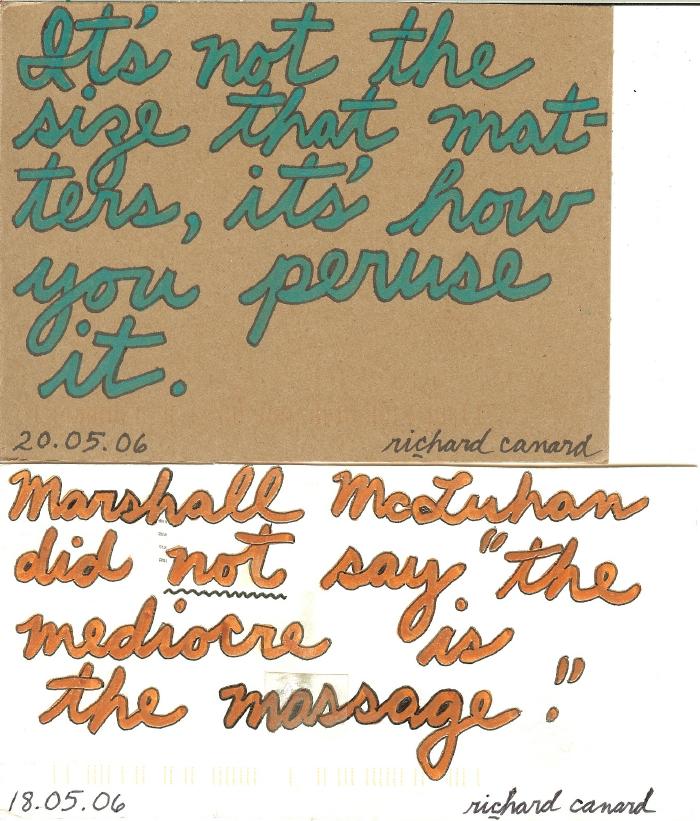 It's not the
size that mat-
ters, it's how
you peruse
it.
20.05.06 richard canard
Marshall McLuhan
did not say "the
mediocre is
the massage."
18.05.06 richard canard